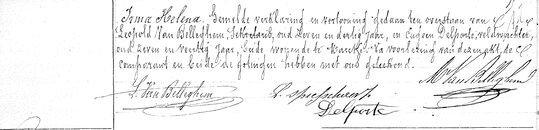 Irma Helena. Gemelde verklaring en vertooning gedaan ten overstaan van
Leopold Van Belleghem, Sekretaris, oud zeven en dertig Jare, en Eugeen Delporte, veldwachter,
oud zeven en veertig Jare, beide wonende te Na voorlezing van deze akt, de
comparant en beide de getuigen hebben met ons geteekend.
L. Van Belleghem
Delporte
Van Belleghem